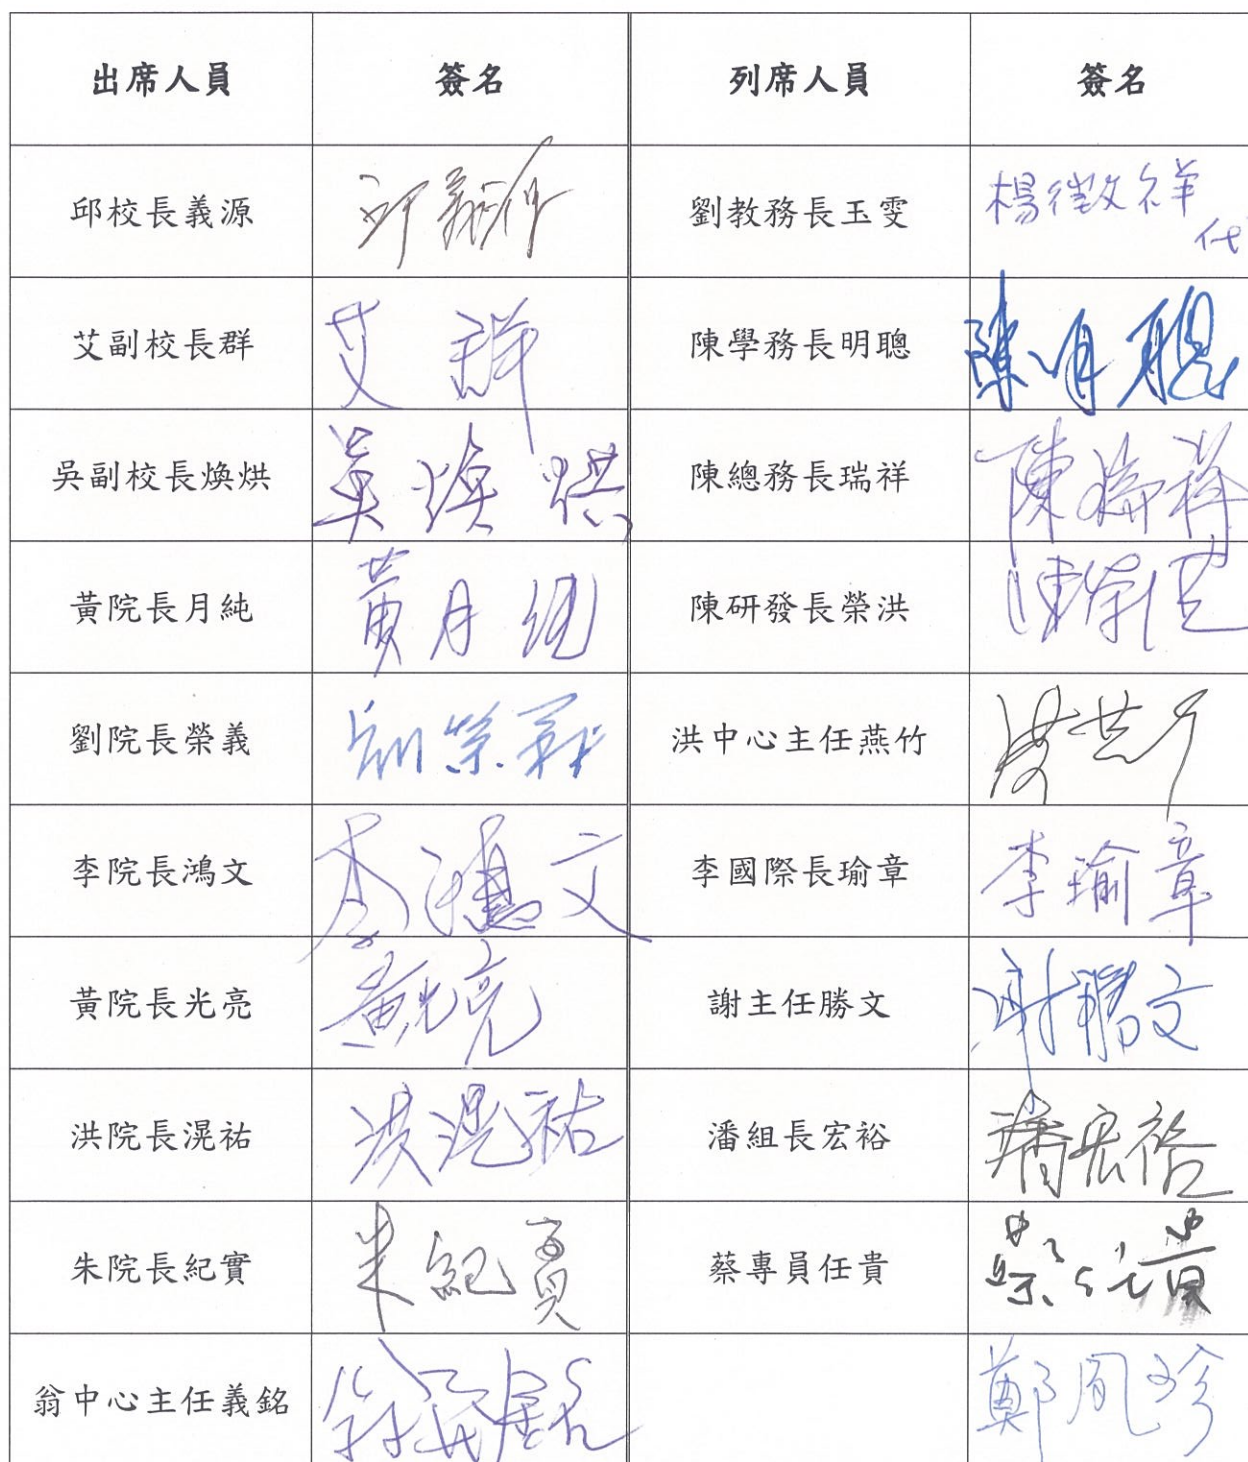 出席人員 簽名 列席人員 簽名
邱校長義源 邱義源 劉教務長玉雯 楊徵祥代
艾副校長群 艾群 陳學務長明聰 陳明聰
吳副校長煥烘 吳煥烘 陳總務長瑞祥 陳瑞祥
黃院長月純 黃月純 陳研發長榮洪 陳榮洪
劉院長榮義 劉榮義 洪中心主任燕竹 洪燕竹
李院長鴻文 李鴻文 李國際長瑜章 李瑜章
黃院長光亮 黃光亮 謝主任勝文 謝勝文
洪院長滉祐 洪滉祐 潘組長宏裕 潘宏裕
朱院長紀實 朱紀實 蔡專員任貴 蔡任貴
翁中心主任義銘 翁義銘 鄭鳳珍